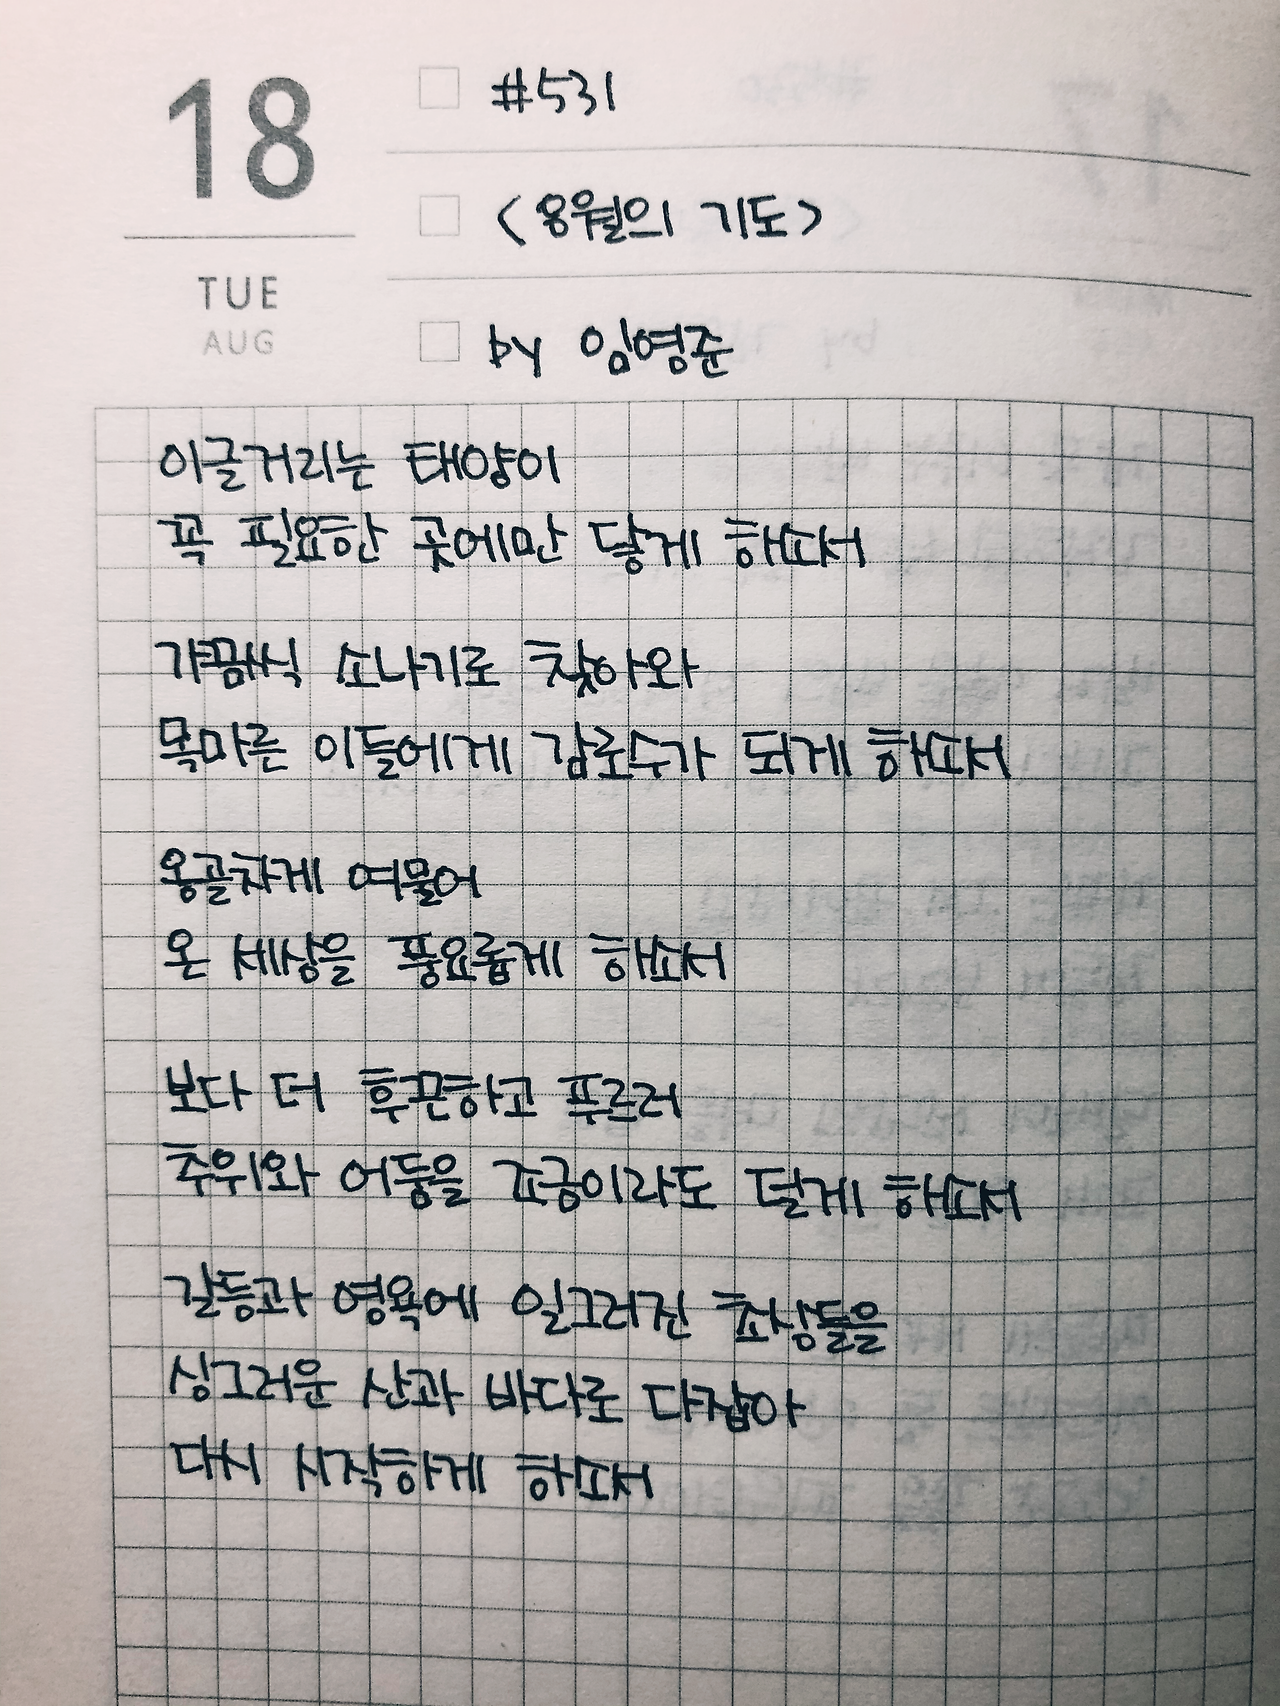 18
TUE
AUG
#531
<8월의 기도>
by 임영준
이글거리는 태양이
꼭 필요한 곳에만 닿게 하소서
가끔씩 소나기로 찾아와
목마른 이들에게 감로수가 되게 하소서
옹골차게 여물어
온 세상을 풍요롭게 하소서
보다 더 후끈하고 푸르러
추위와 어둠을 조금이라도 덜게 하소서
갈등과 영욕에 일그러진 초상들을
싱그러운 산과 바다로 다잡아
다시 시작하게 하소서